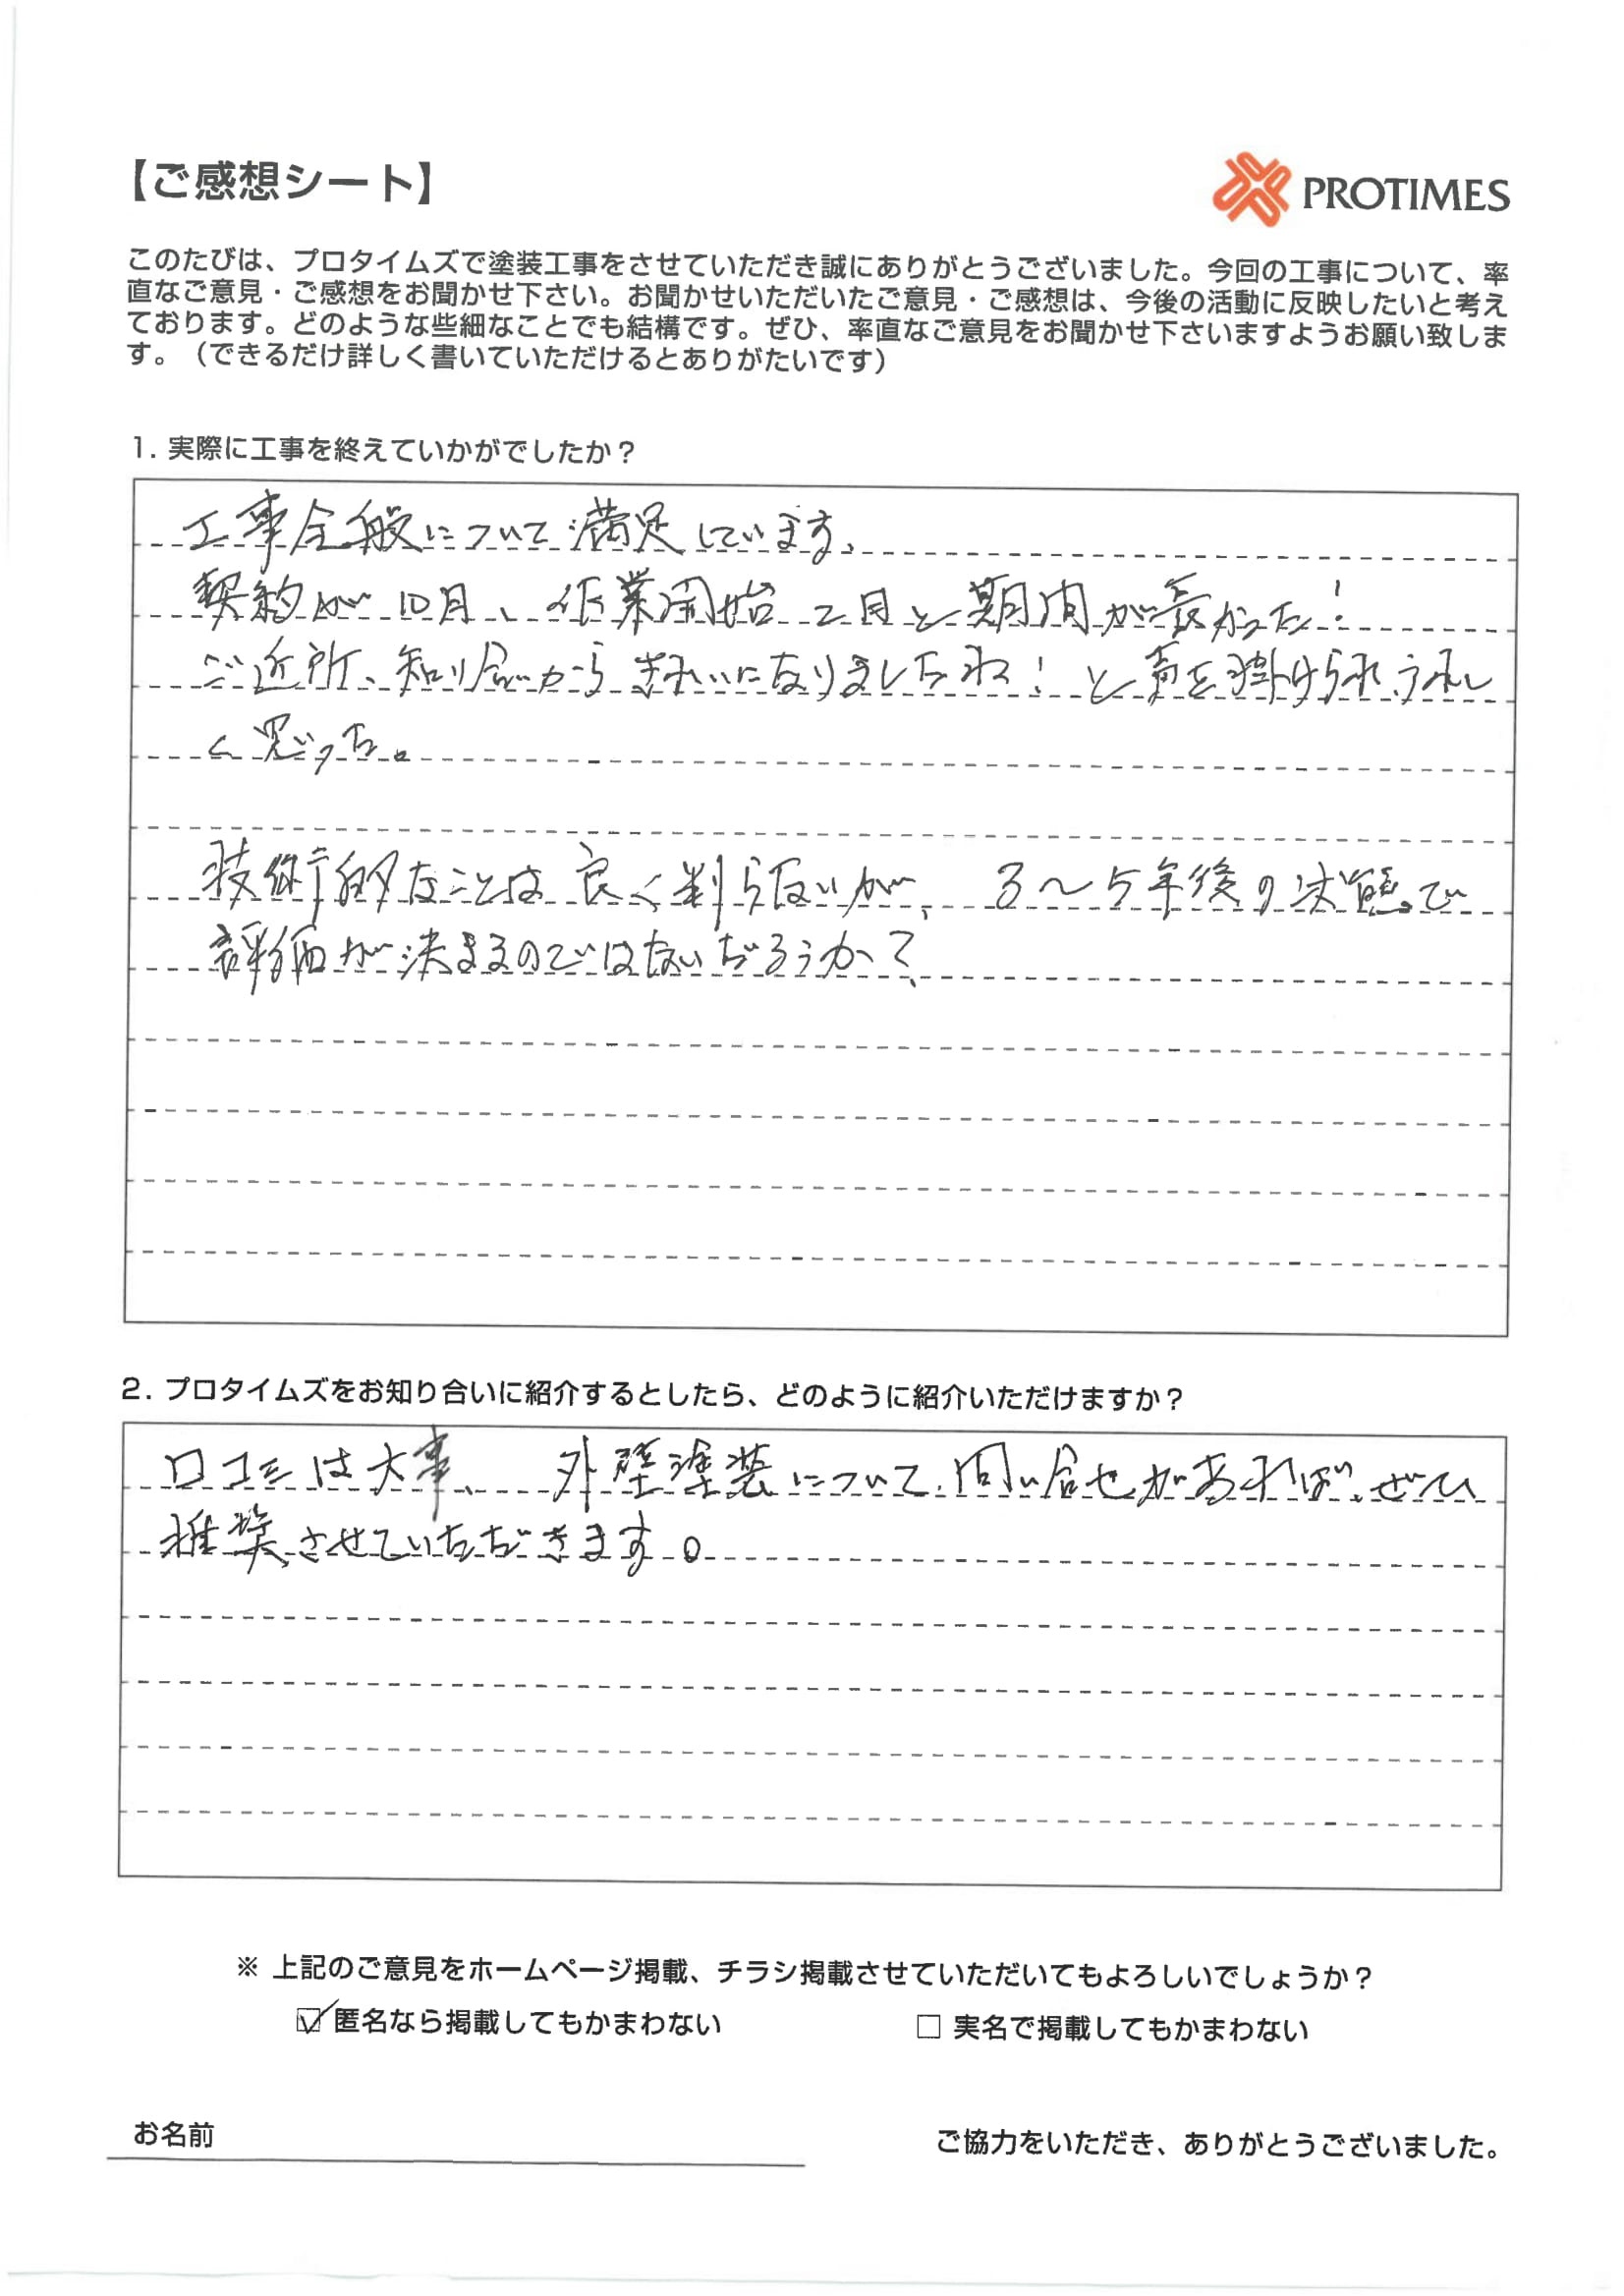 【ご感想シート】
PROTIMES
このたびは、プロタイムズで塗装工事をさせていただき誠にありがとうございました。今回の工事について、率
直なご意見・ご感想をお聞かせ下さい。お聞かせいただいたご意見・ご感想は、今後の活動に反映したいと考え
ております。どのような些細なことでも結構です。ぜひ、率直なご意見をお聞かせ下さいますようお願い致しま
す。（できるだけ詳しく書いていただけるとありがたいです）
1. 実際に工事を終えていかがでしたか？
工事全般について満足しています、
契約が10月、作業開始2月と期間が長かった！
ご近所、知り合いからきれいになりましたね！と声を掛けられ、うれし
く思った。
技術的なことは良く判らないが、3〜5年後の状態で
評価が決まるのではないだろうか？
2. プロタイムズをお知り合いに紹介するとしたら、どのように紹介いただけますか？
口コミは大事、外壁塗装について、問い合せがあれば、ぜひ
推奨させていただきます。
※ 上記のご意見をホームページ掲載、チラシ掲載させていただいてもよろしいでしょうか？
☑ 匿名なら掲載してもかまわない □ 実名で掲載してもかまわない
お名前 ご協力をいただき、ありがとうございました。